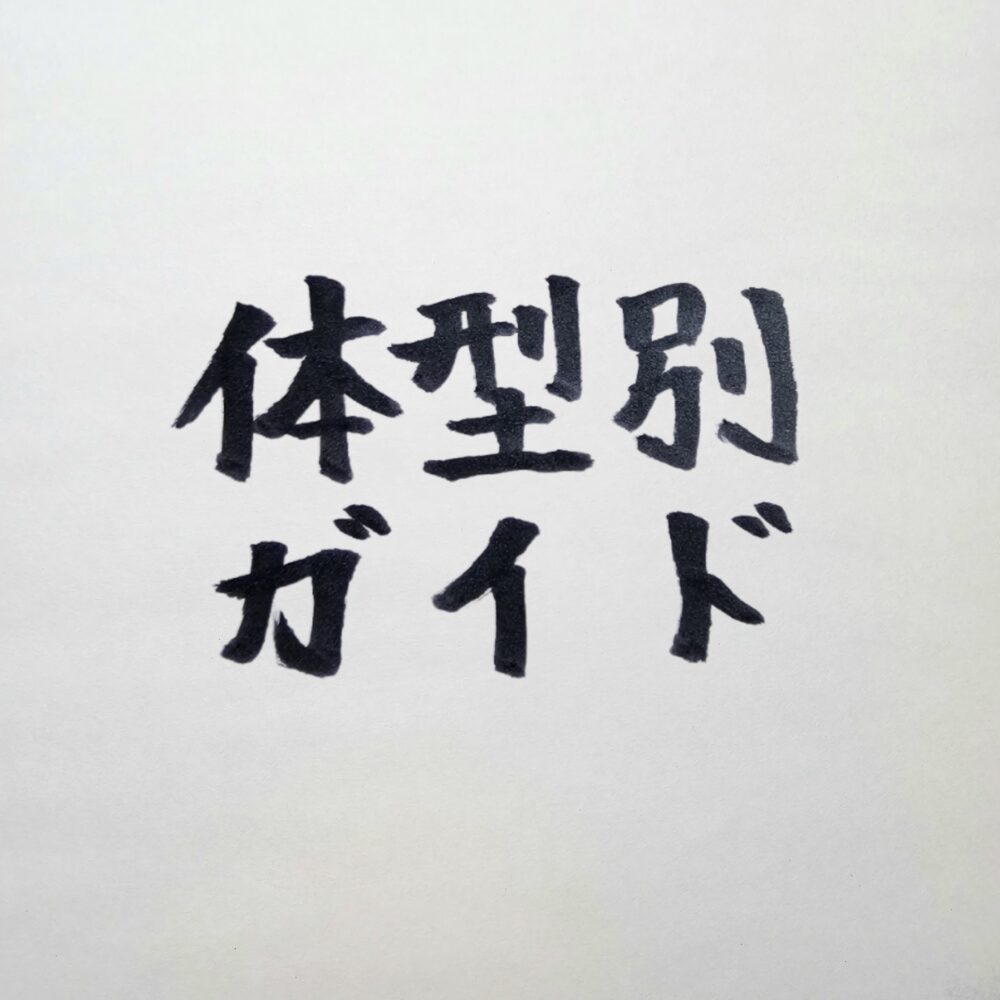 体型別
ガイド